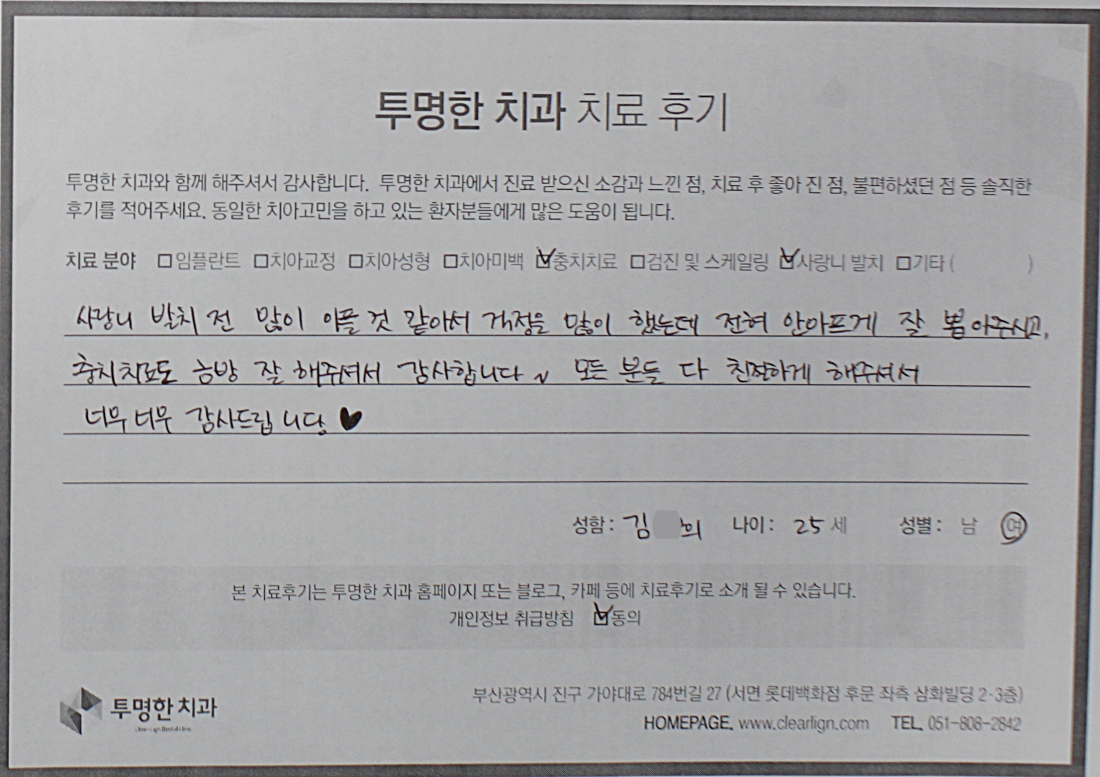 투명한 치과 치료 후기
투명한 치과와 함께 해주셔서 감사합니다. 투명한 치과에서 진료 받으신 소감과 느낀 점, 치료 후 좋아 진 점, 불편하셨던 점 등 솔직한
후기를 적어주세요. 동일한 치아고민을 하고 있는 환자분들에게 많은 도움이 됩니다.
치료 분야 ☐임플란트 ☐치아교정 ☐치아성형 ☐치아미백 ☑충치치료 ☐검진 및 스케일링 ☑사랑니 발치 ☐기타 ( )
사랑니 발치 전 많이 아플 것 같아서 걱정을 많이 했는데 전혀 안아프게 잘 뽑아주시고,
충치치료도 금방 잘 해주셔서 감사합니다~ 모든 분들 다 친절하게 해주셔서
너무너무 감사드립니다 ♥
성함 : 김 희 나이 : 25 세 성별 : 남 여
본 치료후기는 투명한 치과 홈페이지 또는 블로그, 카페 등에 치료후기로 소개 될 수 있습니다.
개인정보 취급방침 ☑동의
투명한 치과
부산광역시 진구 가야대로 784번길 27 (서면 롯데백화점 후문 좌측 삼화빌딩 2-3층)
HOMEPAGE. www.clearlign.com TEL. 051-808-2842